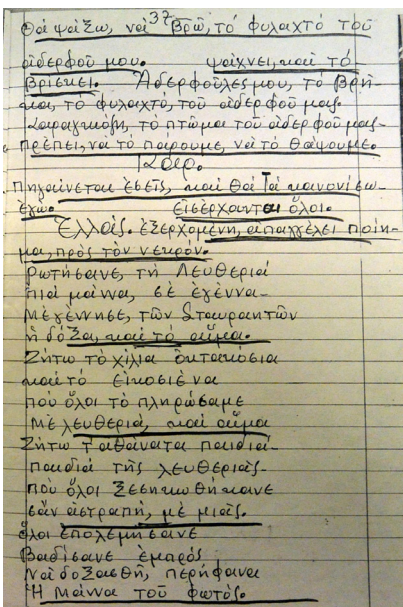 37
Θά ψάξω, νά βρῶ, τό φυλαχτό τοῦ
ἀδερφοῦ μου. ψάχνει, καί τό
βρίσκει. Ἀδερφοῦλες μου, τό βρῆ-
κα, τό φυλαχτό, τοῦ ἀδερφοῦ μας.
Καραγκιόζη, τό πτῶμα τοῦ ἀδερφοῦ μας-
πρέπει, νά το πάρουμε, νά τό θάψουμε.
Καρ.
Πηγαίνεται ἐσεῖς, καί θά τά κανονίσω-
ἐγώ. εἰσέρχονται ὅλοι.
Ἑλλάς. ἐξερχομένη, ἀπαγγέλει ποίη-
μα, πρός τόν νεκρόν.
Ρωτήσανε, τή Λευθεριά
πιά μάννα, σέ ἐγέννα-
Μέ γέννησε, τῶν Σταυραητῶν
ἡ δόξα, καί τό αἷμα.
Ζήτω τό χίλια ὀκτακόσια
καί τό εἰκοσιένα
πού ὅλοι τό πληρώσαμε
μέ λευθεριά, καί αἷμα
Ζήτω τ' ἀθάνατα παιδιά-
παιδιά τῆς λευθεριᾶς-
πού ὅλοι ξεσηκωθήκανε
σάν ἀστραπή, μέ μιᾶς.
ὅλοι ἐπολεμήσανε
Βαδίσανε ἐμπρός
Νά δοξασθῆ, περήφανα
Ἡ μάννα τοῦ φωτός.